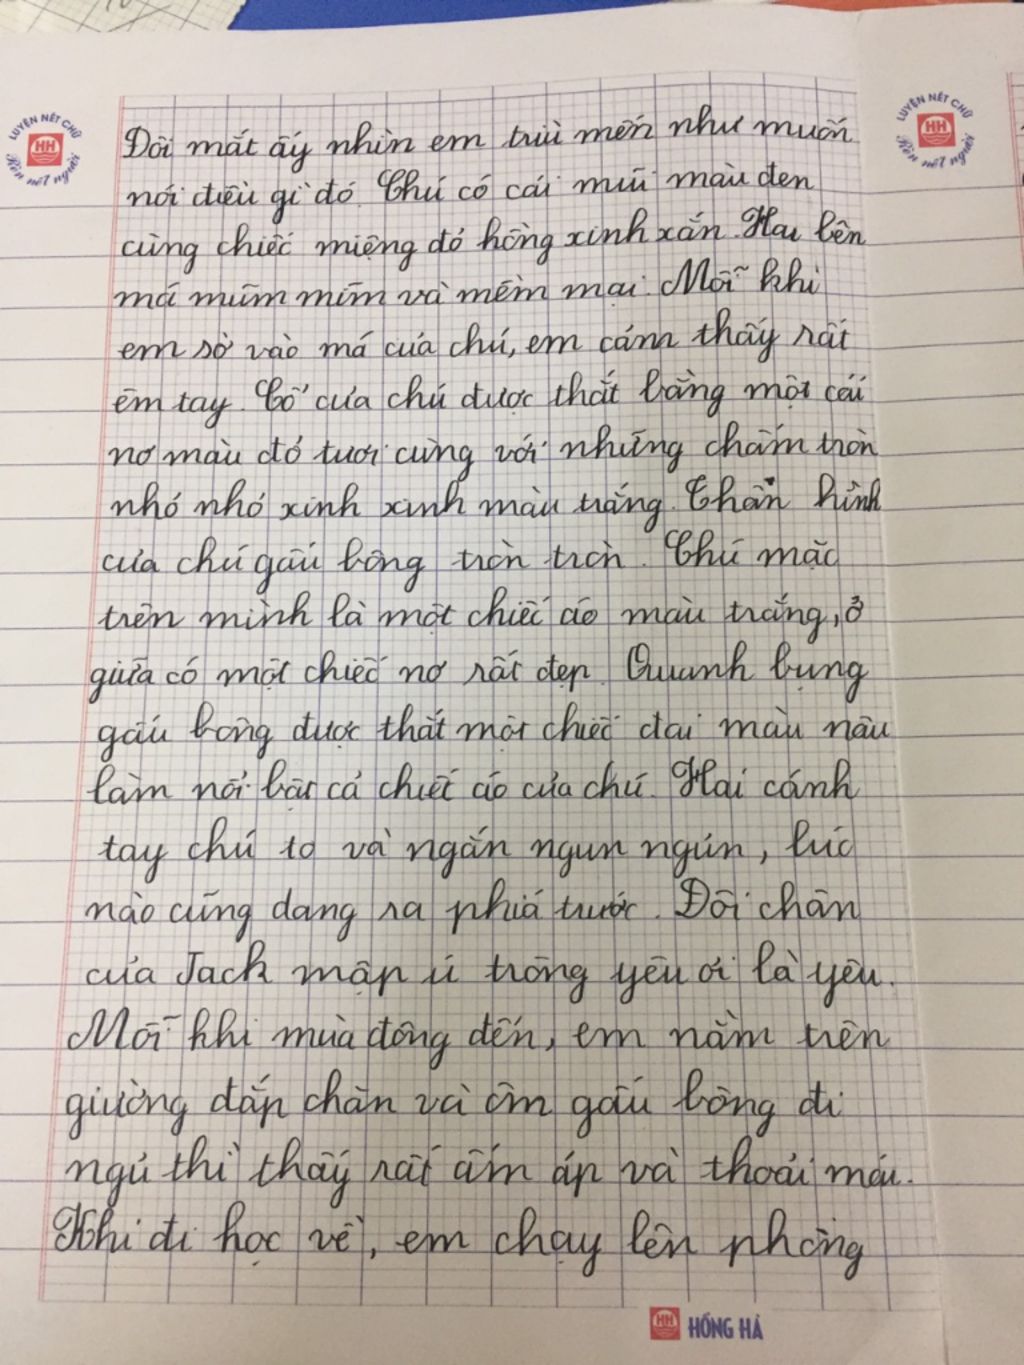 LUYỆN NÉT CHỮ
HH
Rèn nết người
LUYỆN NÉT CHỮ
HH
Rèn nết người
Đôi mắt ấy nhìn em trìu mến như muốn
nói điều gì đó. Chú có cái mũi màu đen
cùng chiếc miệng đỏ hồng xinh xắn. Hai bên
má mũm mĩm và mềm mại. Mỗi khi
em sờ vào má của chú, em cảm thấy rất
êm tay. Cổ của chú được thắt bằng một cái
nơ màu đỏ tươi cùng với những chấm tròn
nhỏ nhỏ xinh xinh màu trắng. Thân hình
của chú gấu bông tròn tròn. Chú mặc
trên mình là một chiếc áo màu trắng, ở
giữa có một chiếc nơ rất đẹp. Quanh bụng
gấu bông được thắt một chiếc đai màu nâu
làm nổi bật cả chiếc áo của chú. Hai cánh
tay chú to và ngắn ngun ngủn, lúc
nào cũng dang ra phía trước. Đôi chân
của Jack mập ú trông yêu ơi là yêu.
Mỗi khi mùa đông đến, em nằm trên
giường đắp chăn và ôm gấu bông đi
ngủ thì thấy rất ấm áp và thoải mái.
Khi đi học về, em chạy lên phòng
HH HỒNG HÀ